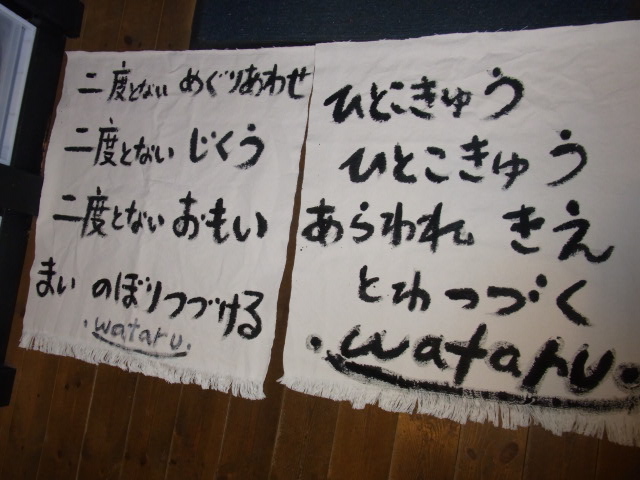 二度とない めぐりあわせ
二度とない じくう
二度とない おもい
まい のぼりつづける
.wataru.
ひとこきゅう
ひとこきゅう
あらわれ きえ
とわ つづく
.wataru.